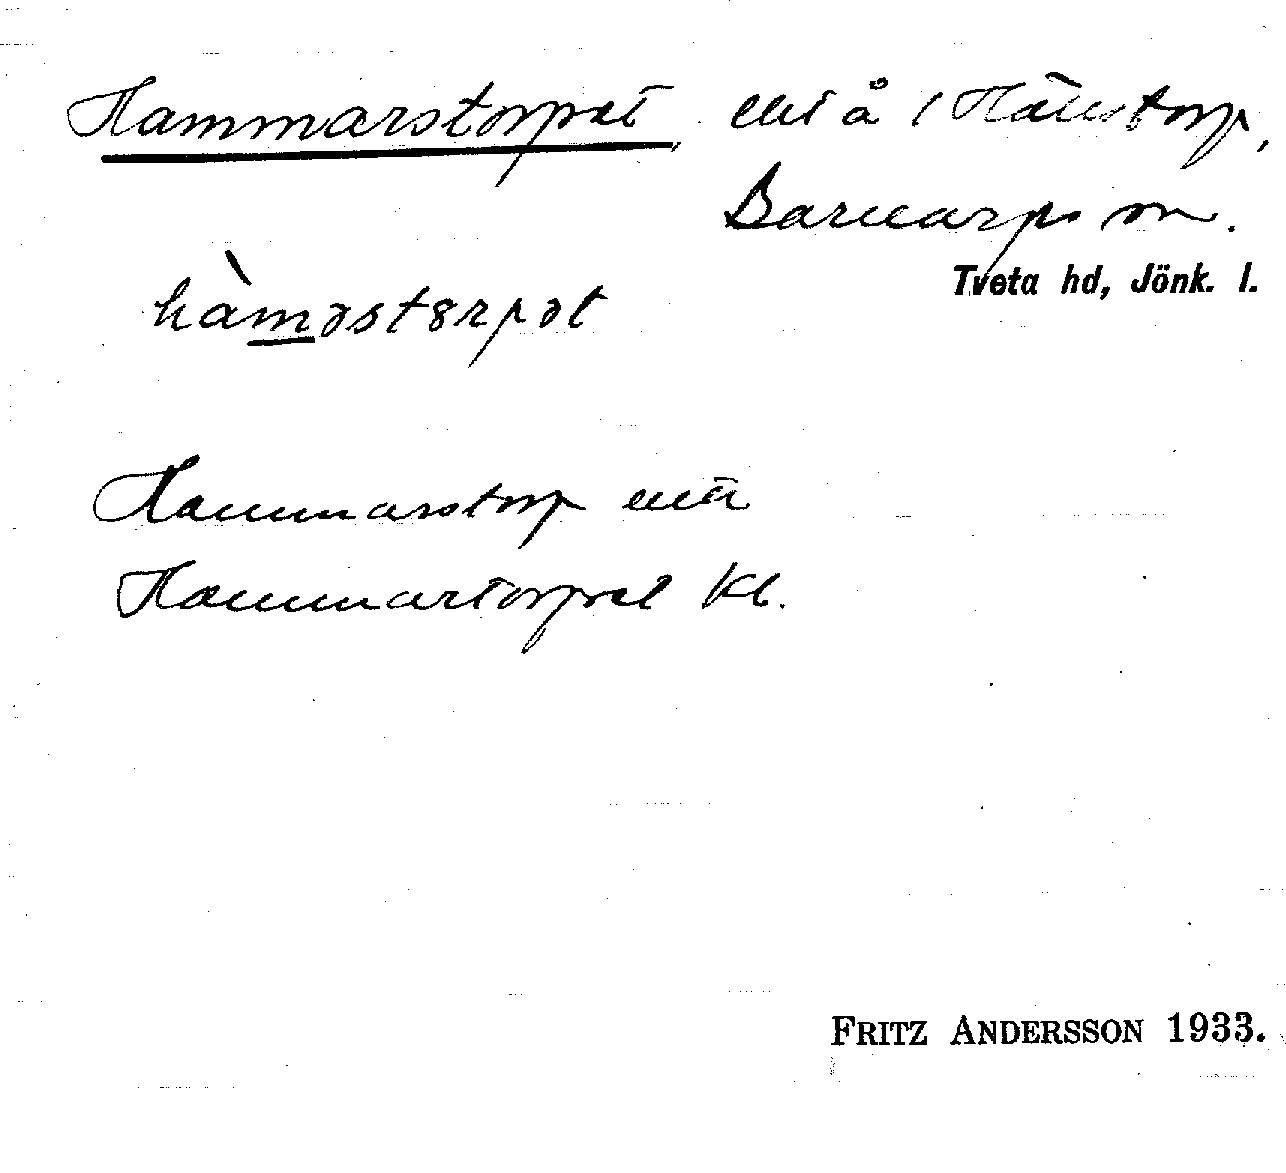 Hammarstorpet, å i
Barnarps sn.
Tveta hd, Jönk. l.
hàmastorpat
Hammarstorp
Hammartorpet
FRITZ ANDERSSON 1933.